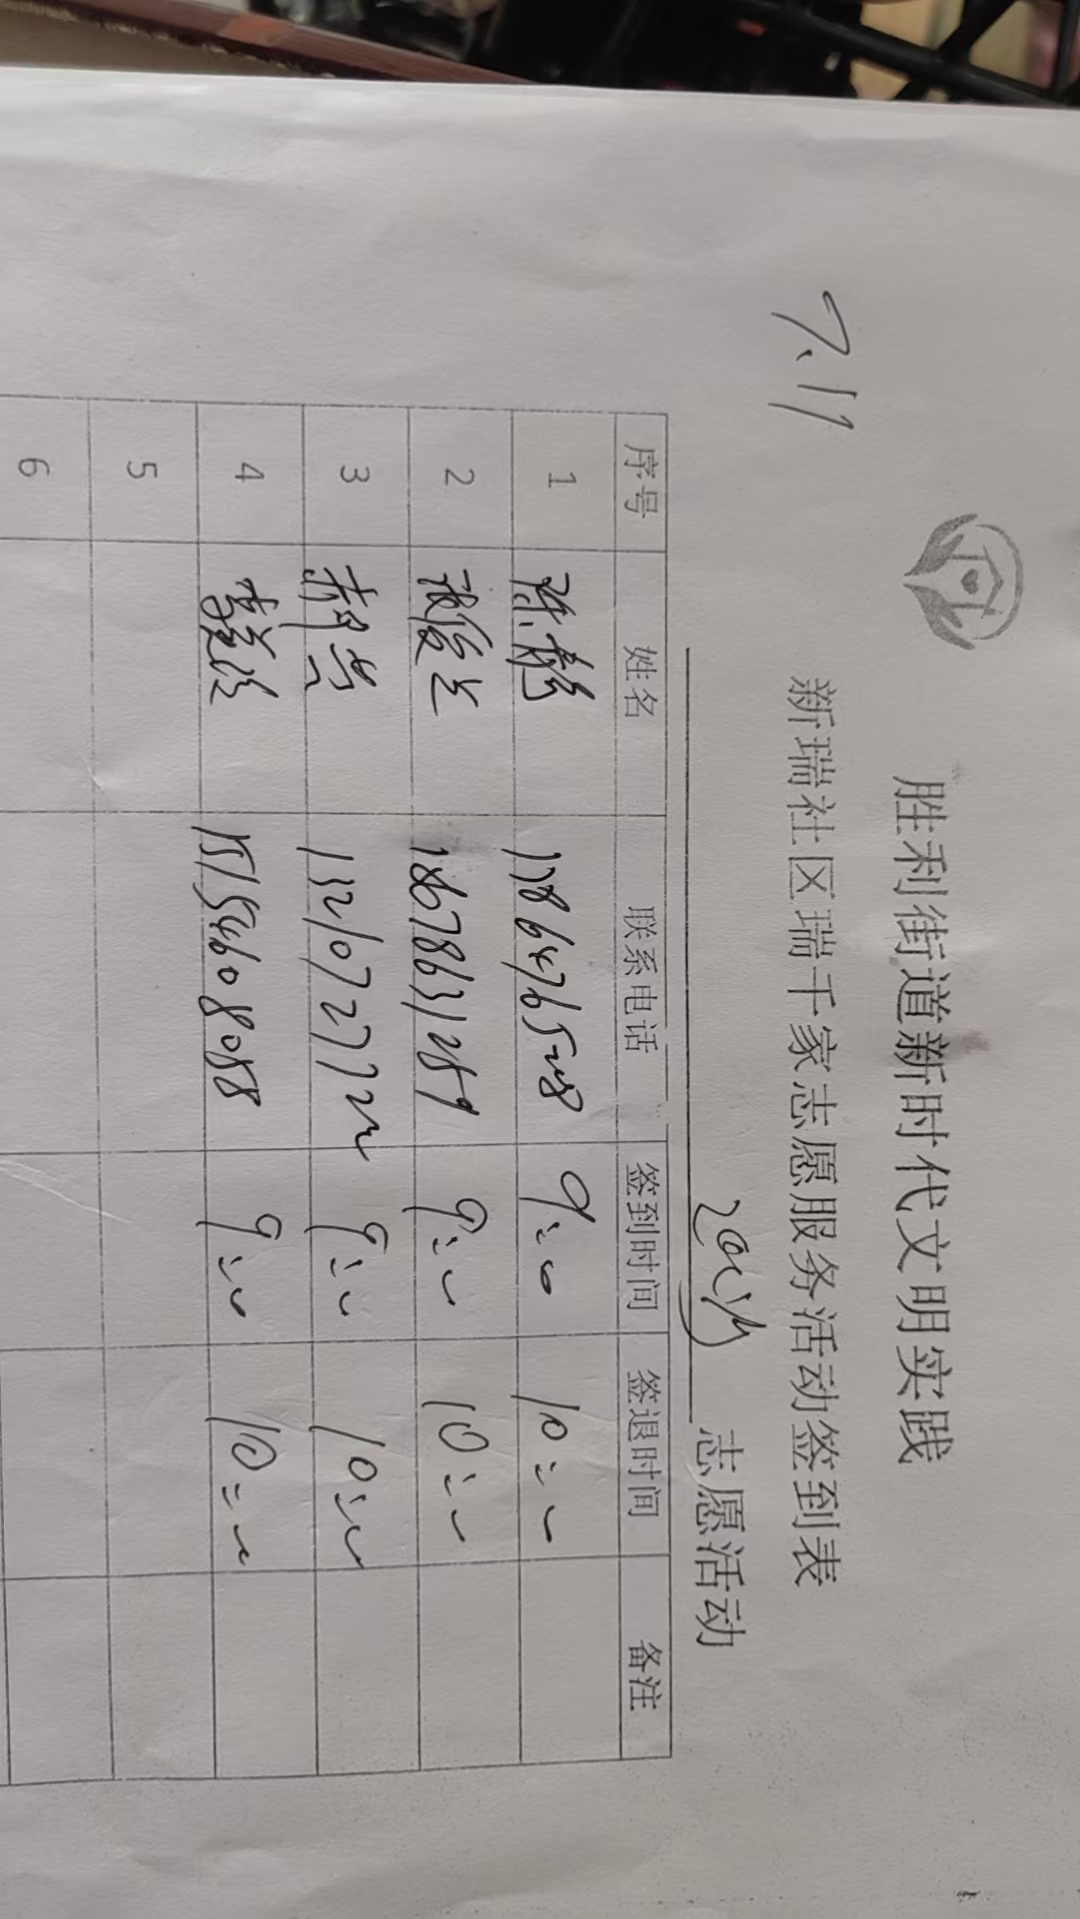 7.11
胜利街道新时代文明实践
新瑞社区瑞千家志愿服务活动签到表
志愿活动
序号 姓名 联系电话 签到时间 签退时间 备注
1 陈静 9:00 10:00
2 18678631289 9:00 10:00
3 郝兰 13210727722 9:00 10:00
4 15154608088 9:00 10:00
5
6